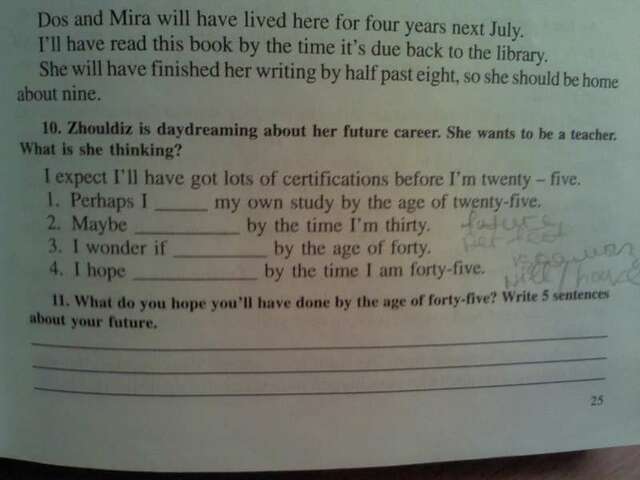 Dos and Mira will have lived here for four years next July.
I'll have read this book by the time it's due back to the library.
She will have finished her writing by half past eight, so she should be home
about nine.
10. Zhouldiz is daydreaming about her future career. She wants to be a teacher.
What is she thinking?
I expect I'll have got lots of certifications before I'm twenty – five.
1. Perhaps I ______ my own study by the age of twenty-five.
2. Maybe ____________ by the time I'm thirty.
future
perfect
3. I wonder if ____________ by the age of forty.
4. I hope ______________ by the time I am forty-five.
will / have
11. What do you hope you'll have done by the age of forty-five? Write 5 sentences
about your future.
25